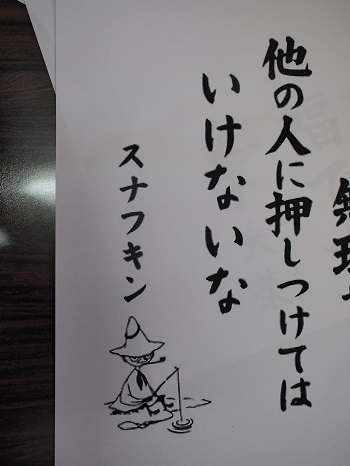 無理
他の人に押しつけては
いけないな
スナフキン